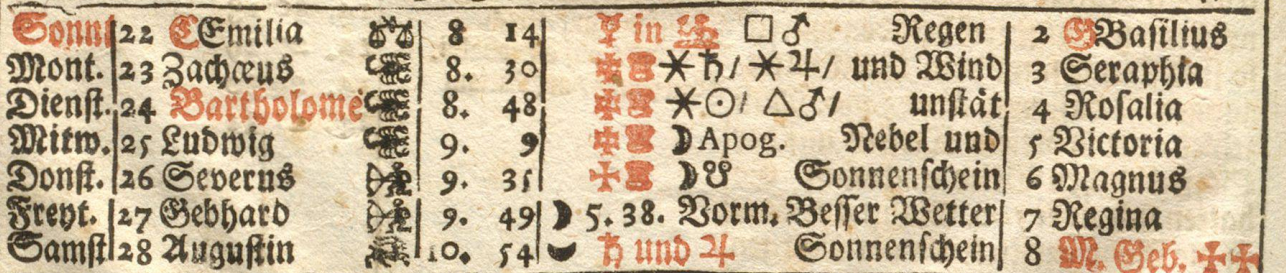 Sonnt 22 C Emilia ♎ 8 14 ☿ in ♎ □ ♂ Regen 2 G Basilius
Mont. 23 Zachæus 8. 30 ✠ ⚹ ♄ / ⚹ ♃ / und Wind 3 Seraphia
Dienst. 24 Bartholome 8. 48 ✠ ⚹ ☉ / △ ♂ / unstät 4 Rosalia
Mitw. 25 Ludwig 9. 9 ✠ ☽ Apog. Nebel und 5 Victoria
Donst. 26 Severus 9. 35 ✠ ☽ ☋ Sonnenschein 6 Magnus
Freyt. 27 Gebhard 9. 49 ☽ 5. 38. Vorm. Besser Wetter 7 Regina
Samst 28 Augustin 10. 54 ♄ und ♃ Sonnenschein 8 M. Geb. ✠✠